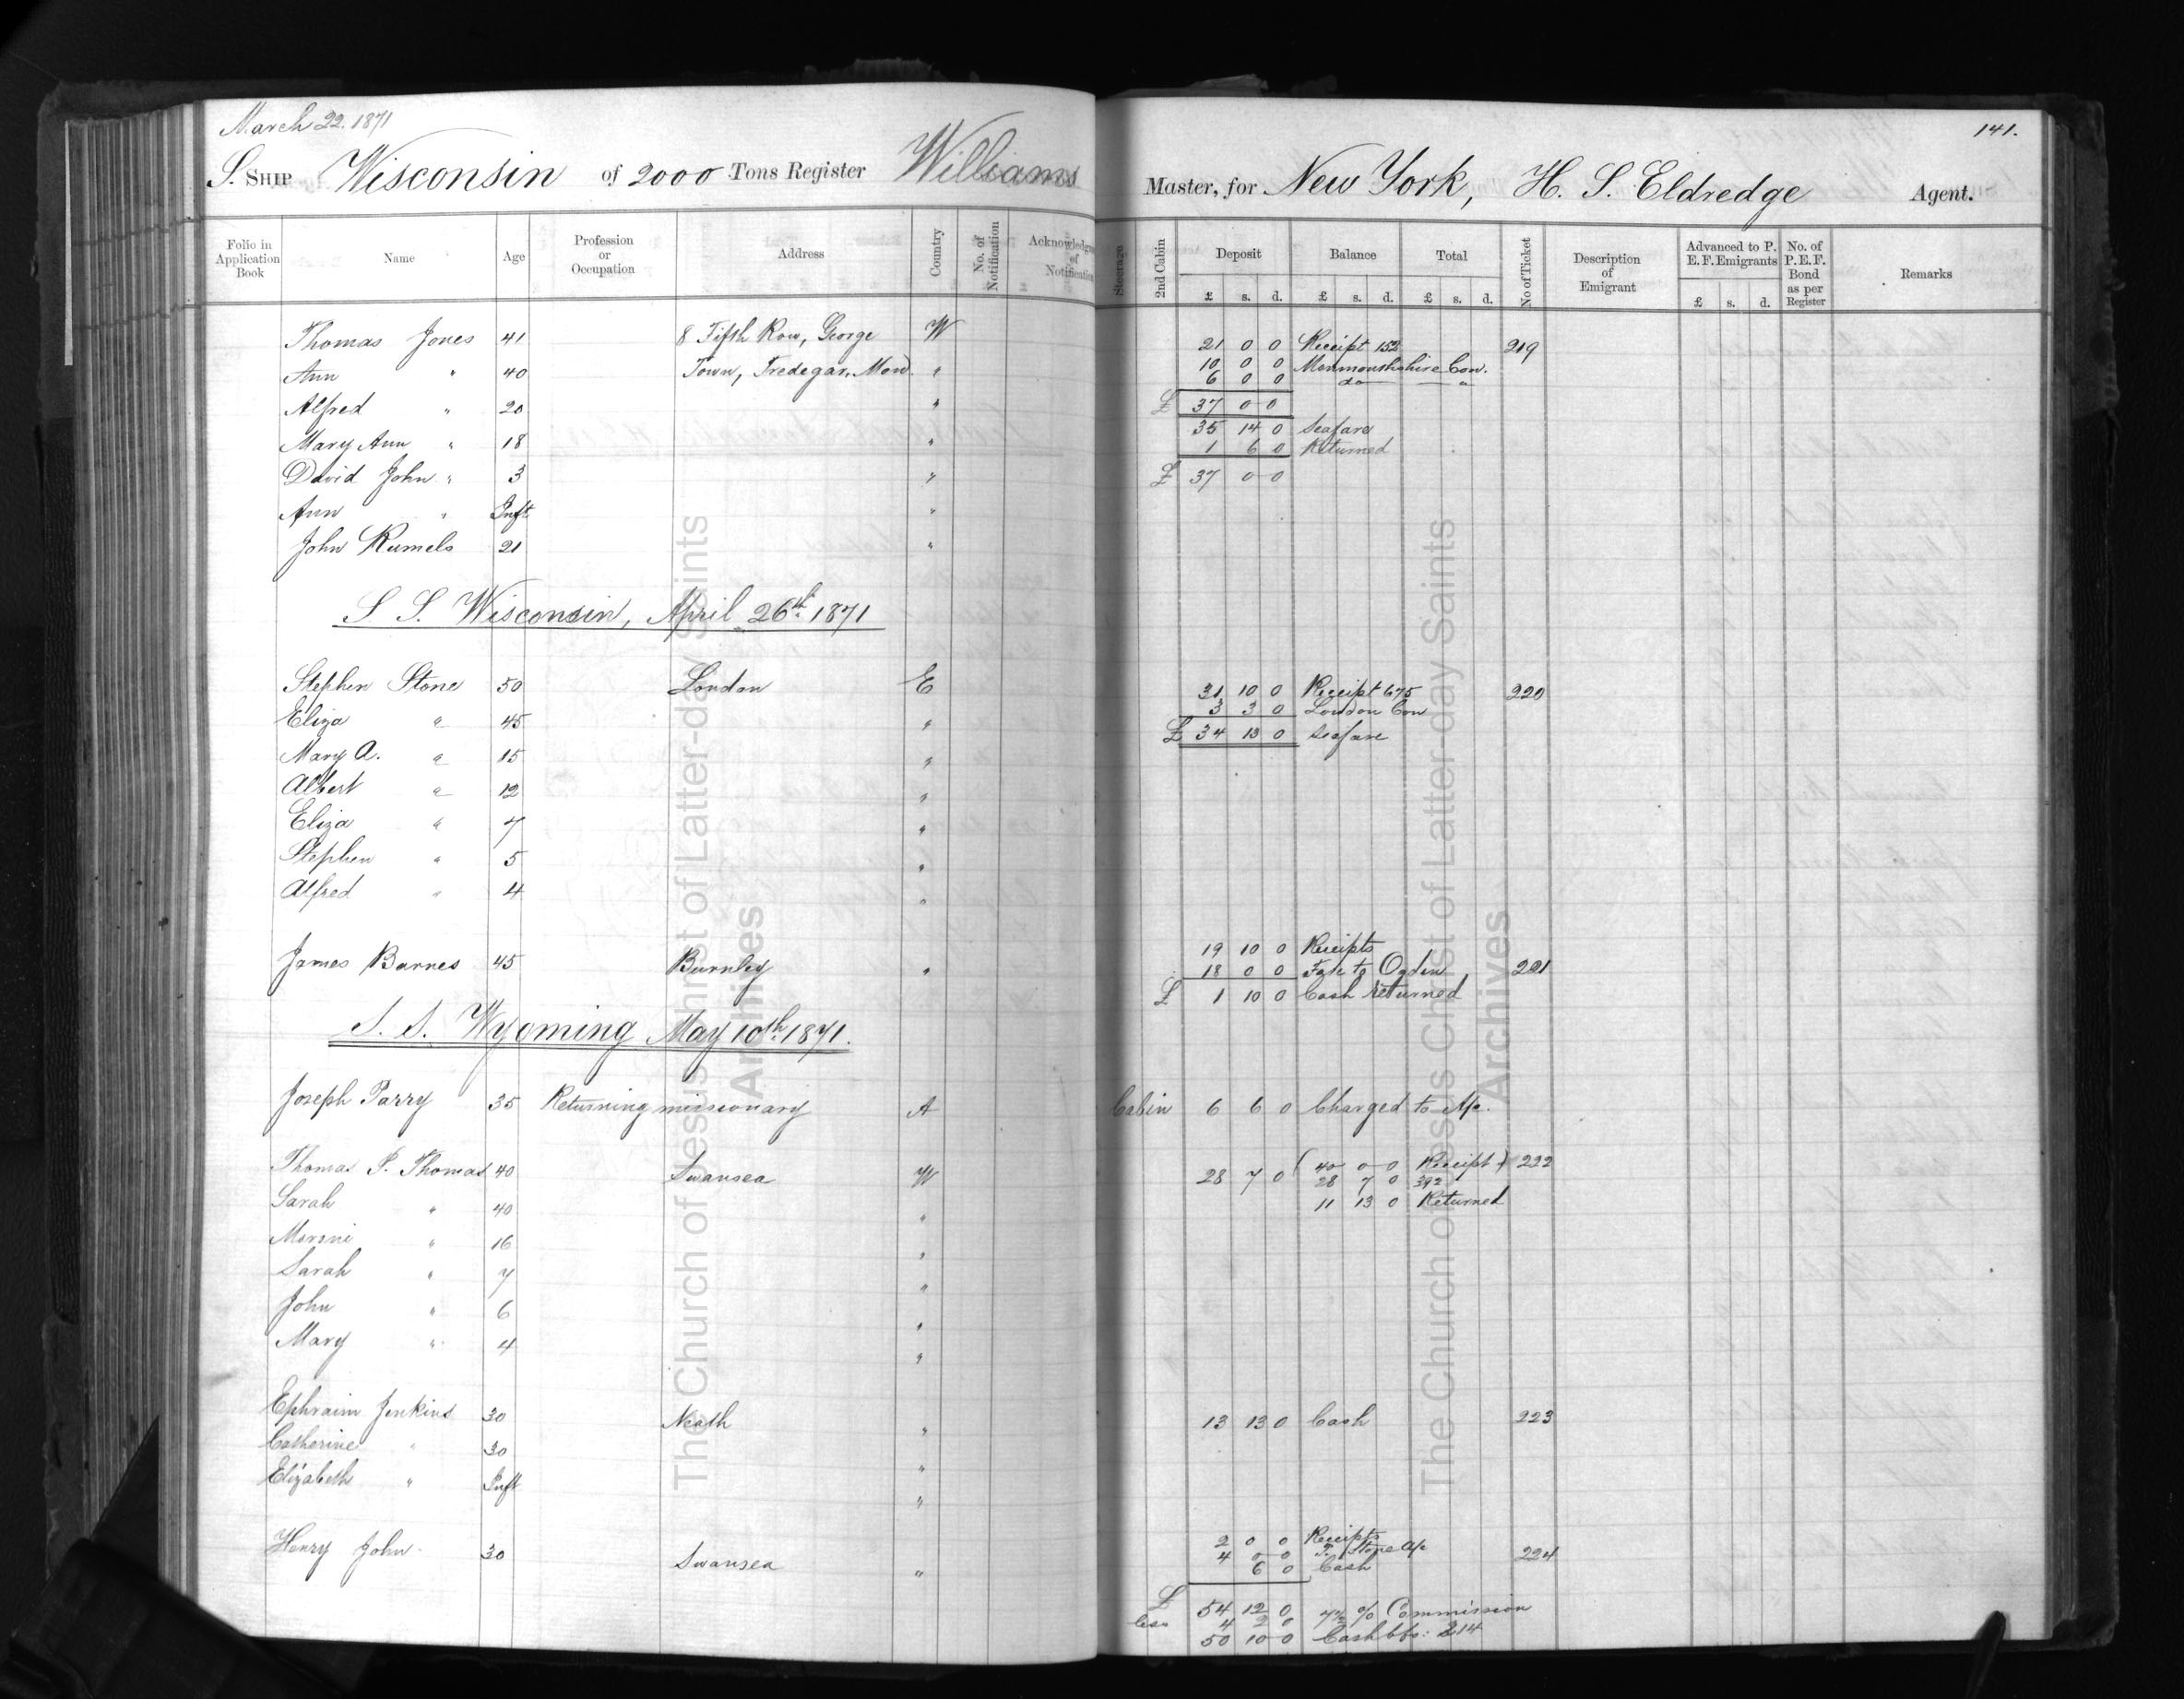 March 22. 1871
141.
S. SHIP Wisconsin of 2000 Tons Register Williams Master, for New York, H. S. Eldredge Agent.
Folio in Application Book | Name | Age | Profession or Occupation | Address | Country | No. of Notification | Acknowledgm of Notification | Steerage | 2nd Cabin | Deposit £ s. d. | Balance £ s. d. | Total £ s. d. | No of Ticket | Description of Emigrant | Advanced to P. E. F. Emigrants £ s. d. | No. of P. E. F. Bond as per Register | Remarks
Thomas Jones 41 8 Fifth Row, George W 21 0 0 Receipt 152 219
Ann " 40 Town, Tredegar, Mon. " 10 0 0 Monmouthshire Con.
6 0 0 do "
Alfred " 20 " £ 37 0 0
Mary Ann " 18 " 35 14 0 Seafare
1 6 0 Returned
David John " 3 " £ 37 0 0
Ann " Inft "
John Rumels 21 "
S S. Wisconsin, April 26th 1871
Stephen Stone 50 London E 31 10 0 Receipt 675 220
Eliza " 45 " 3 3 0 London Con
Mary A. " 15 " £ 34 13 0 Seafare
Albert " 12 "
Eliza " 7 "
Stephen " 5 "
Alfred " 4 "
19 10 0 Receipts
James Barnes 45 Burnley " 18 0 0 Fare to Ogden 221
£ 1 10 0 Cash returned
S. S. Wyoming May 10th 1871.
Joseph Parry 35 Returning missionary A Cabin 6 6 0 Charged to A/c.
Thomas P. Thomas 40 Swansea W 28 7 0 ( 40 0 0 Receipt ) 222
28 7 0 392
Sarah " 40 " 11 13 0 Returned
Moroni " 16 "
Sarah " 7 "
John " 6 "
Mary " 4 "
Ephraim Jenkins 30 Neath " 13 13 0 Cash 223
Catherine " 30 "
Elizabeth " Inft "
2 0 0 Receipts
Henry John 30 Swansea " 4 0 0 Stone A/c 224
6 0 Cash
£ 54 12 0 7½ % Commission
less 4 2 0
50 10 0 Cash 214
The Church of Jesus Christ of Latter-day Saints
Archives
The Church of Jesus Christ of Latter-day Saints
Archives